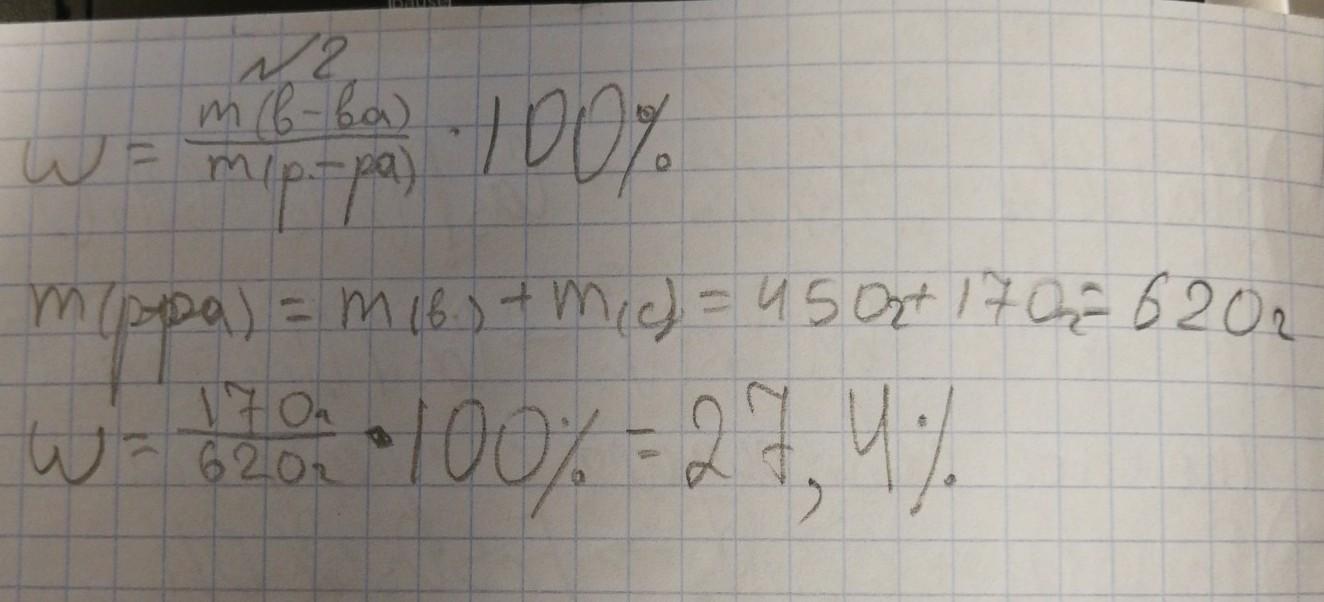 №2
ω = m(в-ва) / m(р-ра) · 100%
m(р-ра) = m(в.) + m(с) = 450г + 170г = 620г
ω = 170г / 620г · 100% = 27,4%